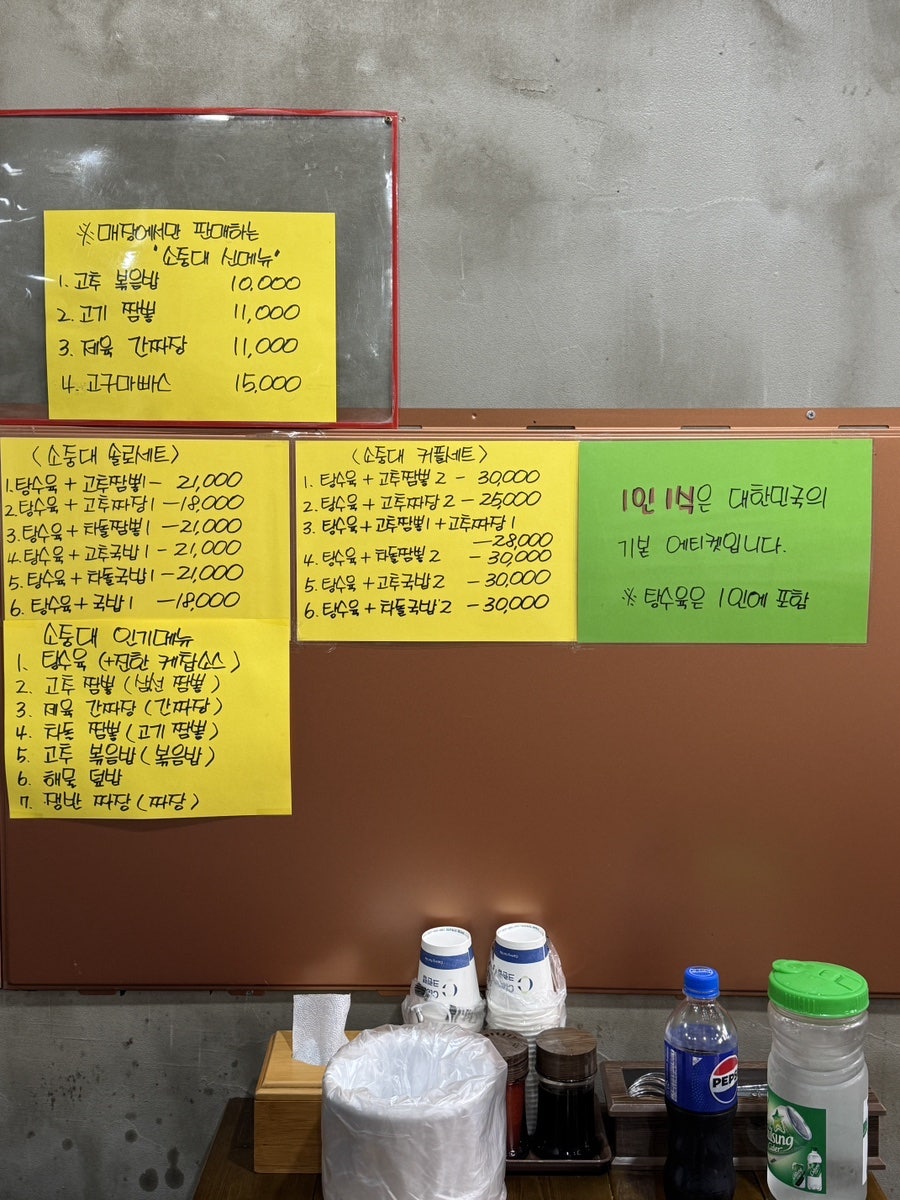 ※매장에서만 판매하는
"소중대 신메뉴"
1. 고추 볶음밥 10,000
2. 고기 짬뽕 11,000
3. 제육 간짜장 11,000
4. 고구마빠스 15,000
(소중대 솔로세트)
1. 탕수육 + 고추짬뽕1 - 21,000
2. 탕수육 + 고추짜장1 - 18,000
3. 탕수육 + 차돌짬뽕1 - 21,000
4. 탕수육 + 고추국밥1 - 21,000
5. 탕수육 + 차돌국밥1 - 21,000
6. 탕수육 + 국밥1 - 18,000
(소중대 커플세트)
1. 탕수육 + 고추짬뽕 2 - 30,000
2. 탕수육 + 고추짜장 2 - 25,000
3. 탕수육 + 고추짬뽕1 + 고추짜장1
- 28,000
4. 탕수육 + 차돌짬뽕 2 - 30,000
5. 탕수육 + 고추국밥 2 - 30,000
6. 탕수육 + 차돌국밥 2 - 30,000
1인 1식은 대한민국의
기본 에티켓입니다.
※ 탕수육은 1인에 포함
소중대 인기메뉴
1. 탕수육 (+진한 케찹소스)
2. 고추 짬뽕 (삼선 짬뽕)
3. 제육 간짜장 (간짜장)
4. 차돌 짬뽕 (고기 짬뽕)
5. 고추 볶음밥 (볶음밥)
6. 해물 덮밥
7. 쟁반 짜장 (짜장)
PEPSI